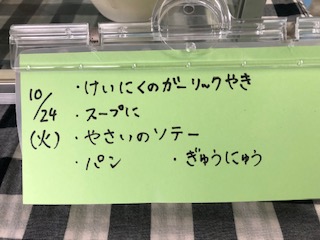 10/24(火)
・けいにくのガーリックやき
・スープに
・やさいのソテー
・パン ・ぎゅうにゅう